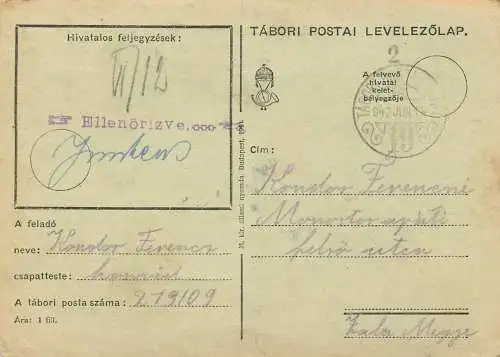 Hivatalos feljegyzések :
VI/12
Ellenőrizve.
TÁBORI POSTAI LEVELEZŐLAP.
2
A felvevő
hivatal
kelet-
bélyegzője
TÁBORI
942 JUN
19
M. kir. állami nyomda. Budapest, 1941.
Cím :
Kondor Ferencné
Monostor apáti
felső utca
Zala Megye
A feladó
neve: Kondor Ferenc
csapatteste: honvéd
A tábori posta száma : 219/09
Ára: 1 fill.